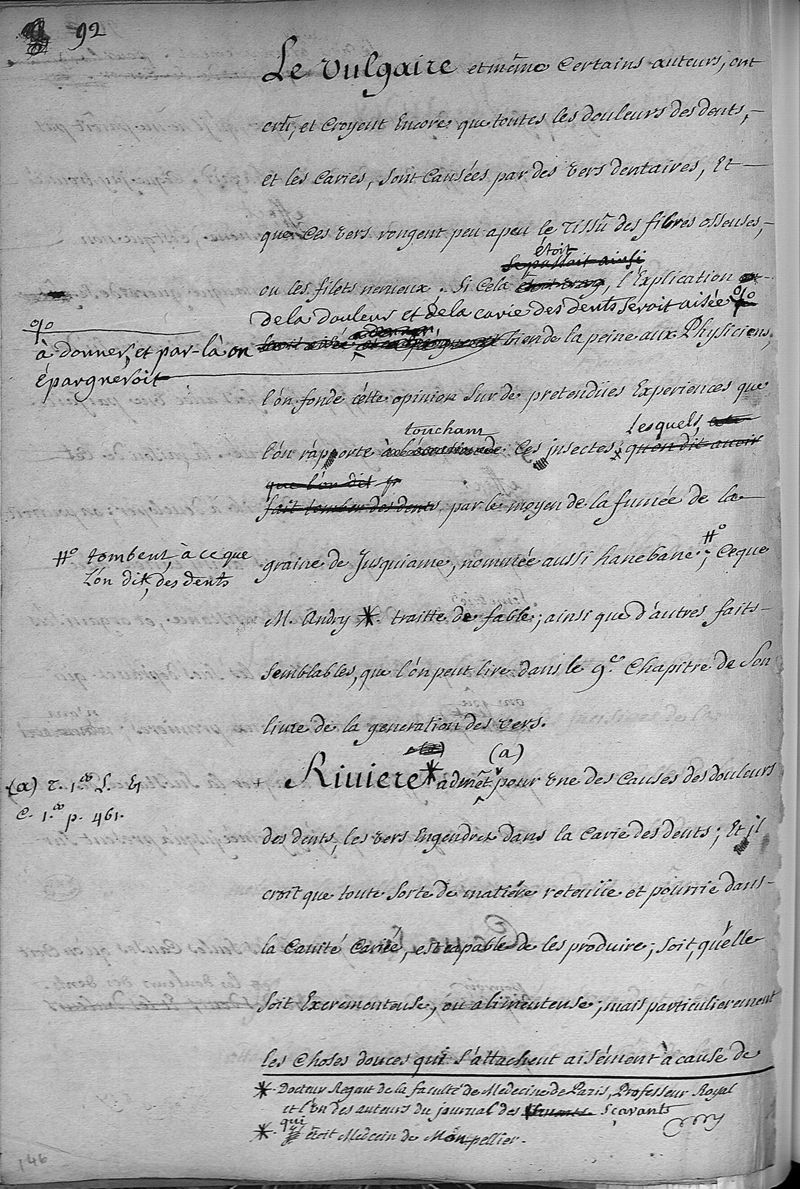 92
Le vulgaire et même certains auteurs, ont
crû, et croyent Encore que toutes les douleurs des dents,
et les caries, sont causées par des vers dentaires, Et
que ces vers rongent peu a peu le tissu des fibres osseuses,
étoit
se passoit ainsi
ou les filets nerveux. Si cela étoit vray, l'Explication
de la douleur et de la carie des dents seroit aisée %
%
à donner, et par-là on
Épargneroit
a donner
bien de la peine aux Physiciens
l'on fonde cette opinion sur de pretendües Experiences que
touchant lesquels,
l'on rapporte ces insectes, qu'on dit avoir
que l'on dit
fait tomber des dents par le moyen de la fumée de la
#° tombent, à ce que
l'on dit, des dents
graine de Jusquiame, nommée aussi hanebane #°; ce que
M. Andry * traitte de fable; ainsi que d'autres faits
semblables, que l'on peut lire dans le 9.e Chapitre de son
livre de la generation des vers.
(a) (a)
Riviere * admet pour une des causes des douleurs
(a) t. 1.er L. 6
C. 1.er p. 461.
des dents, les vers Engendrez dans la carie des dents; Et il
croit que toute sorte de matiére retenüe et pourrie dans
la cavité cariée, est capable de les produire; soit, qu'elle
soit Excrementeuse, ou alimenteuse; mais particulierement
les choses douces qui s'attachent aisément à cause de
* Docteur Regent de la faculté de Medecine de Paris, Professeur Royal
et l'on des auteurs du journal des Scavants
qui
* étoit Medecin de Monpellier.
146